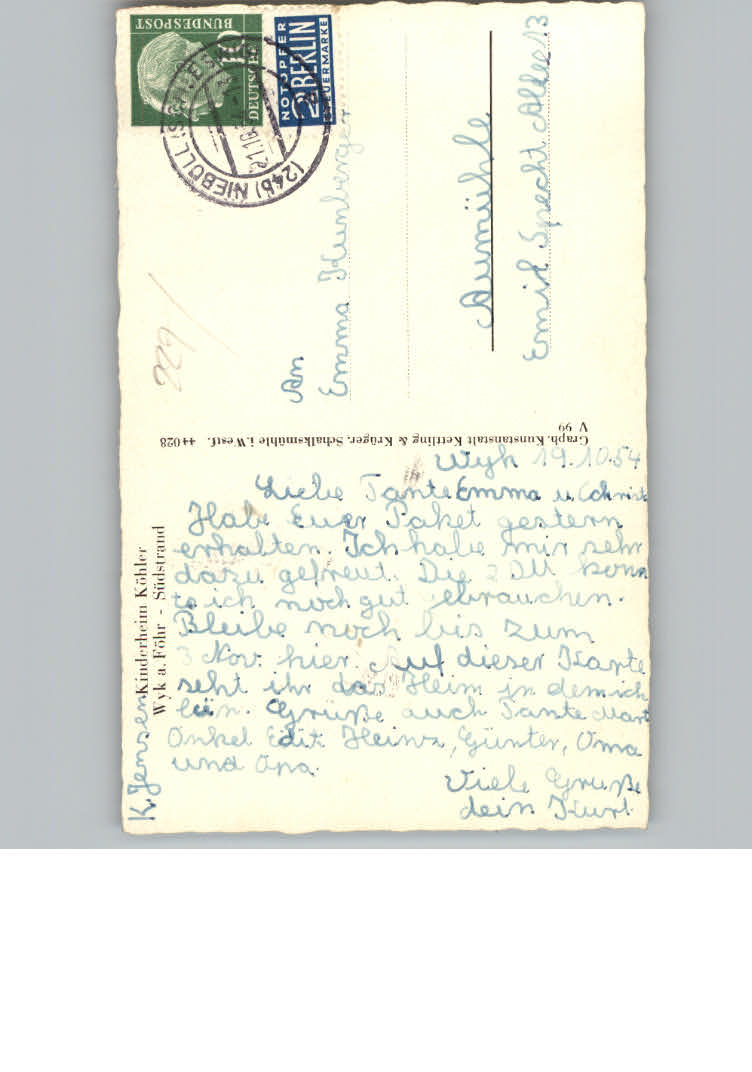 Wyk 19.10.54
Liebe Tante Emma u. Christ
Habe Euer Paket gestern
erhalten. Ich habe mir sehr
dazu gefreut. Die 2 DM konn
te ich noch gut ebrauchen.
Bleibe noch bis zum
3 Nov. hier. Auf dieser Karte
seht ihr das Heim in dem ich
bin. Grüße auch Tante Mart
Onkel Edit Heinz, Günter, Oma
und Opa.
Viele Grüße
dein Kurt
K. Jensen
Kinderheim Köhler
Wyk a. Föhr - Südstrand
Graph. Kunstanstalt Kettling & Krüger, Schalksmühle i. Westf. 44028
V 99
229
An
Emma
Aumühle
Emil Specht Allee 13
DEUTSCHE
BUNDESPOST
10
NOTOPFER
2 BERLIN
STEUERMARKE
(24b) NIEBÜLL